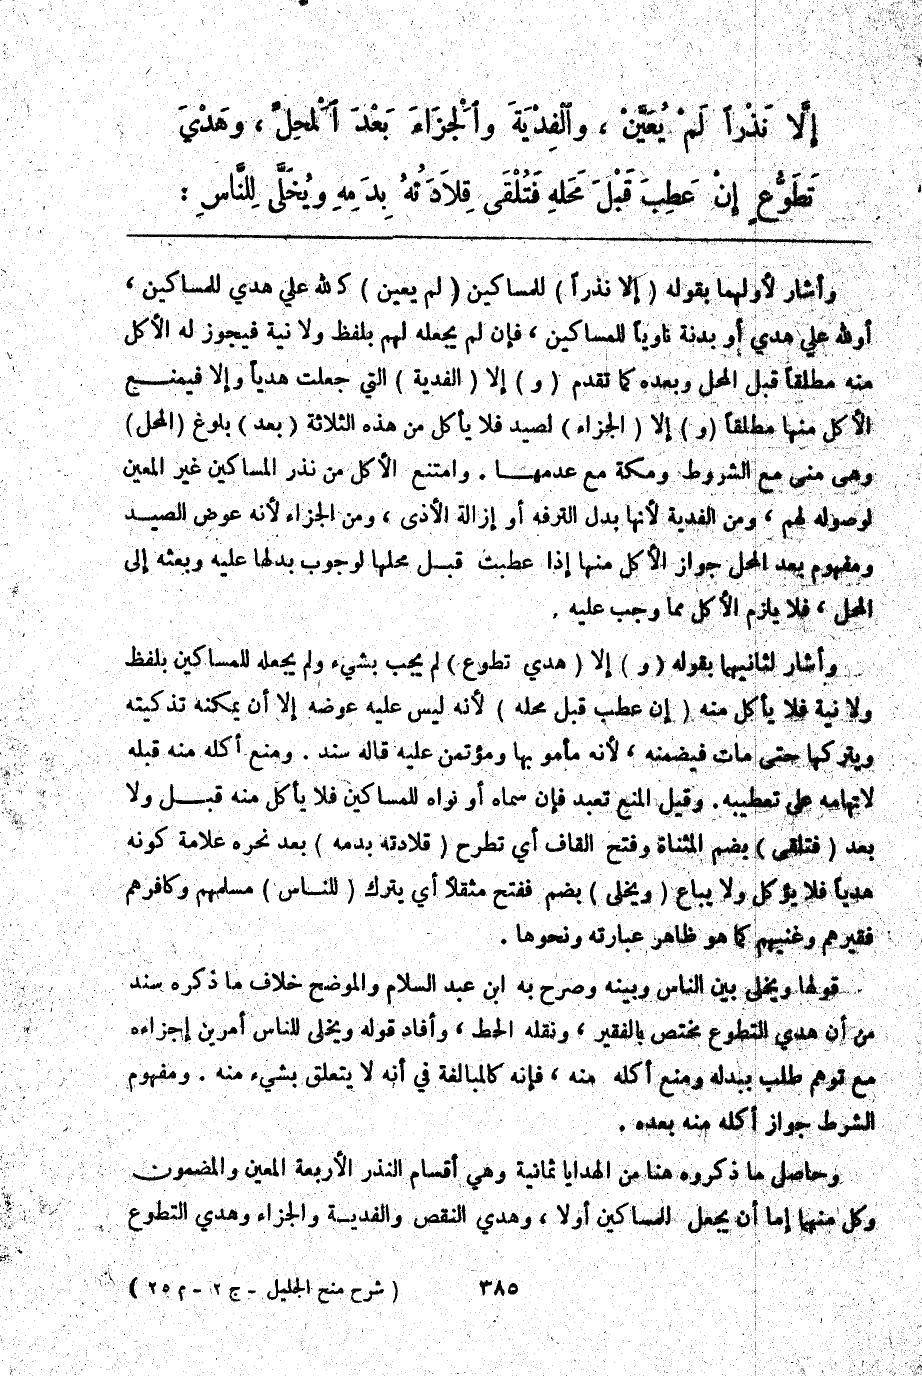 إِلَّا نَذْراً لَمْ يُعَيَّنْ ، وَٱلْفِدْيَةَ وٱلْجَزَاءَ بَعْدَ ٱلْمَحِلِّ ، وهَدْيَ
تَطَوُّعٍ إِنْ عَطِبَ قَبْلَ مَحَلهِ فَتُلْقَى قِلادَتُهُ بِدَمِهِ ويُخَلَّى لِلنَّاسِ :
وأشار لأولهما بقوله ( إلا نذراً ) للمساكين ( لم يعين ) كلله علي هدي للمساكين ،
أو لله علي هدي أو بدنة ناوياً للمساكين ، فإن لم يجعله لهم بلفظ ولا نية فيجوز له الأكل
منه مطلقاً قبل المحل وبعده كما تقدم ( و ) إلا ( الفدية ) التي جعلت هدياً وإلا فيمنـــع
الأكل منها مطلقاً ( و ) إلا ( الجزاء ) لصيد فلا يأكل من هذه الثلاثة ( بعد ) بلوغ ( المحل )
وهى منى مع الشروط ومكة مع عدمهـــا . وامتنع الأكل من نذر المساكين غير المعين
لوصوله لهم ، ومن الفدية لأنها بدل الترفه أو إزالة الأذى ، ومن الجزاء لأنه عوض الصيـد
ومفهوم بعد المحل جواز الأكل منها إذا عطبت قبـل محلها لوجوب بدلها عليه وبعثه إلى
المحل ، فلا يلزم الأكل مما وجب عليه .
وأشار لثانيهما بقوله ( و ) إلا ( هدي تطوع ) لم يجب بشيء ولم يجعله للمساكين بلفظ
ولا نية فلا يأكل منه ( إن عطب قبل محله ) لأنه ليس عليه عوضه إلا أن يمكنه تذكيته
ويتركها حتى مات فيضمنه ، لأنه مأمو بها ومؤتمن عليه قاله سند . ومنع أكله منه قبله
لاتهامه على تعطيبه. وقيل المنع تعبد فإن سماه أو نواه للمساكين فلا يأكل منه قبــل ولا
بعد ( فتلقى ) بضم المثناة وفتح القاف أي تطرح ( قلادته بدمه ) بعد نحره علامة كونه
هدياً فلا يؤكل ولا يباع ( ويخلى ) بضم ففتح مثقلاً أي يترك ( للنـاس ) مسلمهم وكافرهم
فقيرهم وغنيهم كما هو ظاهر عبارته ونحوها .
قولها ويخلى بين الناس وبينه وصرح به ابن عبد السلام والموضح خلاف ما ذكره سند
من أن هدي التطوع مختص بالفقير ، ونقله الحط ، وأفاد قوله ويخلى للناس أمرين إجزاءه
مع توهم طلب ببدله ومنع أكله منه ، فإنه كالمبالغة في أنه لا يتعلق بشيء منه . ومفهوم
الشرط جواز أكله منه بعده .
وحاصل ما ذكروه هنا من الهدايا ثمانية وهي أقسام النذر الأربعة المعين والمضمون
وكل منهما إما أن يجعل للمساكين أولا ، وهدي النقص والفديـة والجزاء وهدي التطوع
٣٨٥ ( شرح منح الجليل - ج ٢ - م ٢٥ )